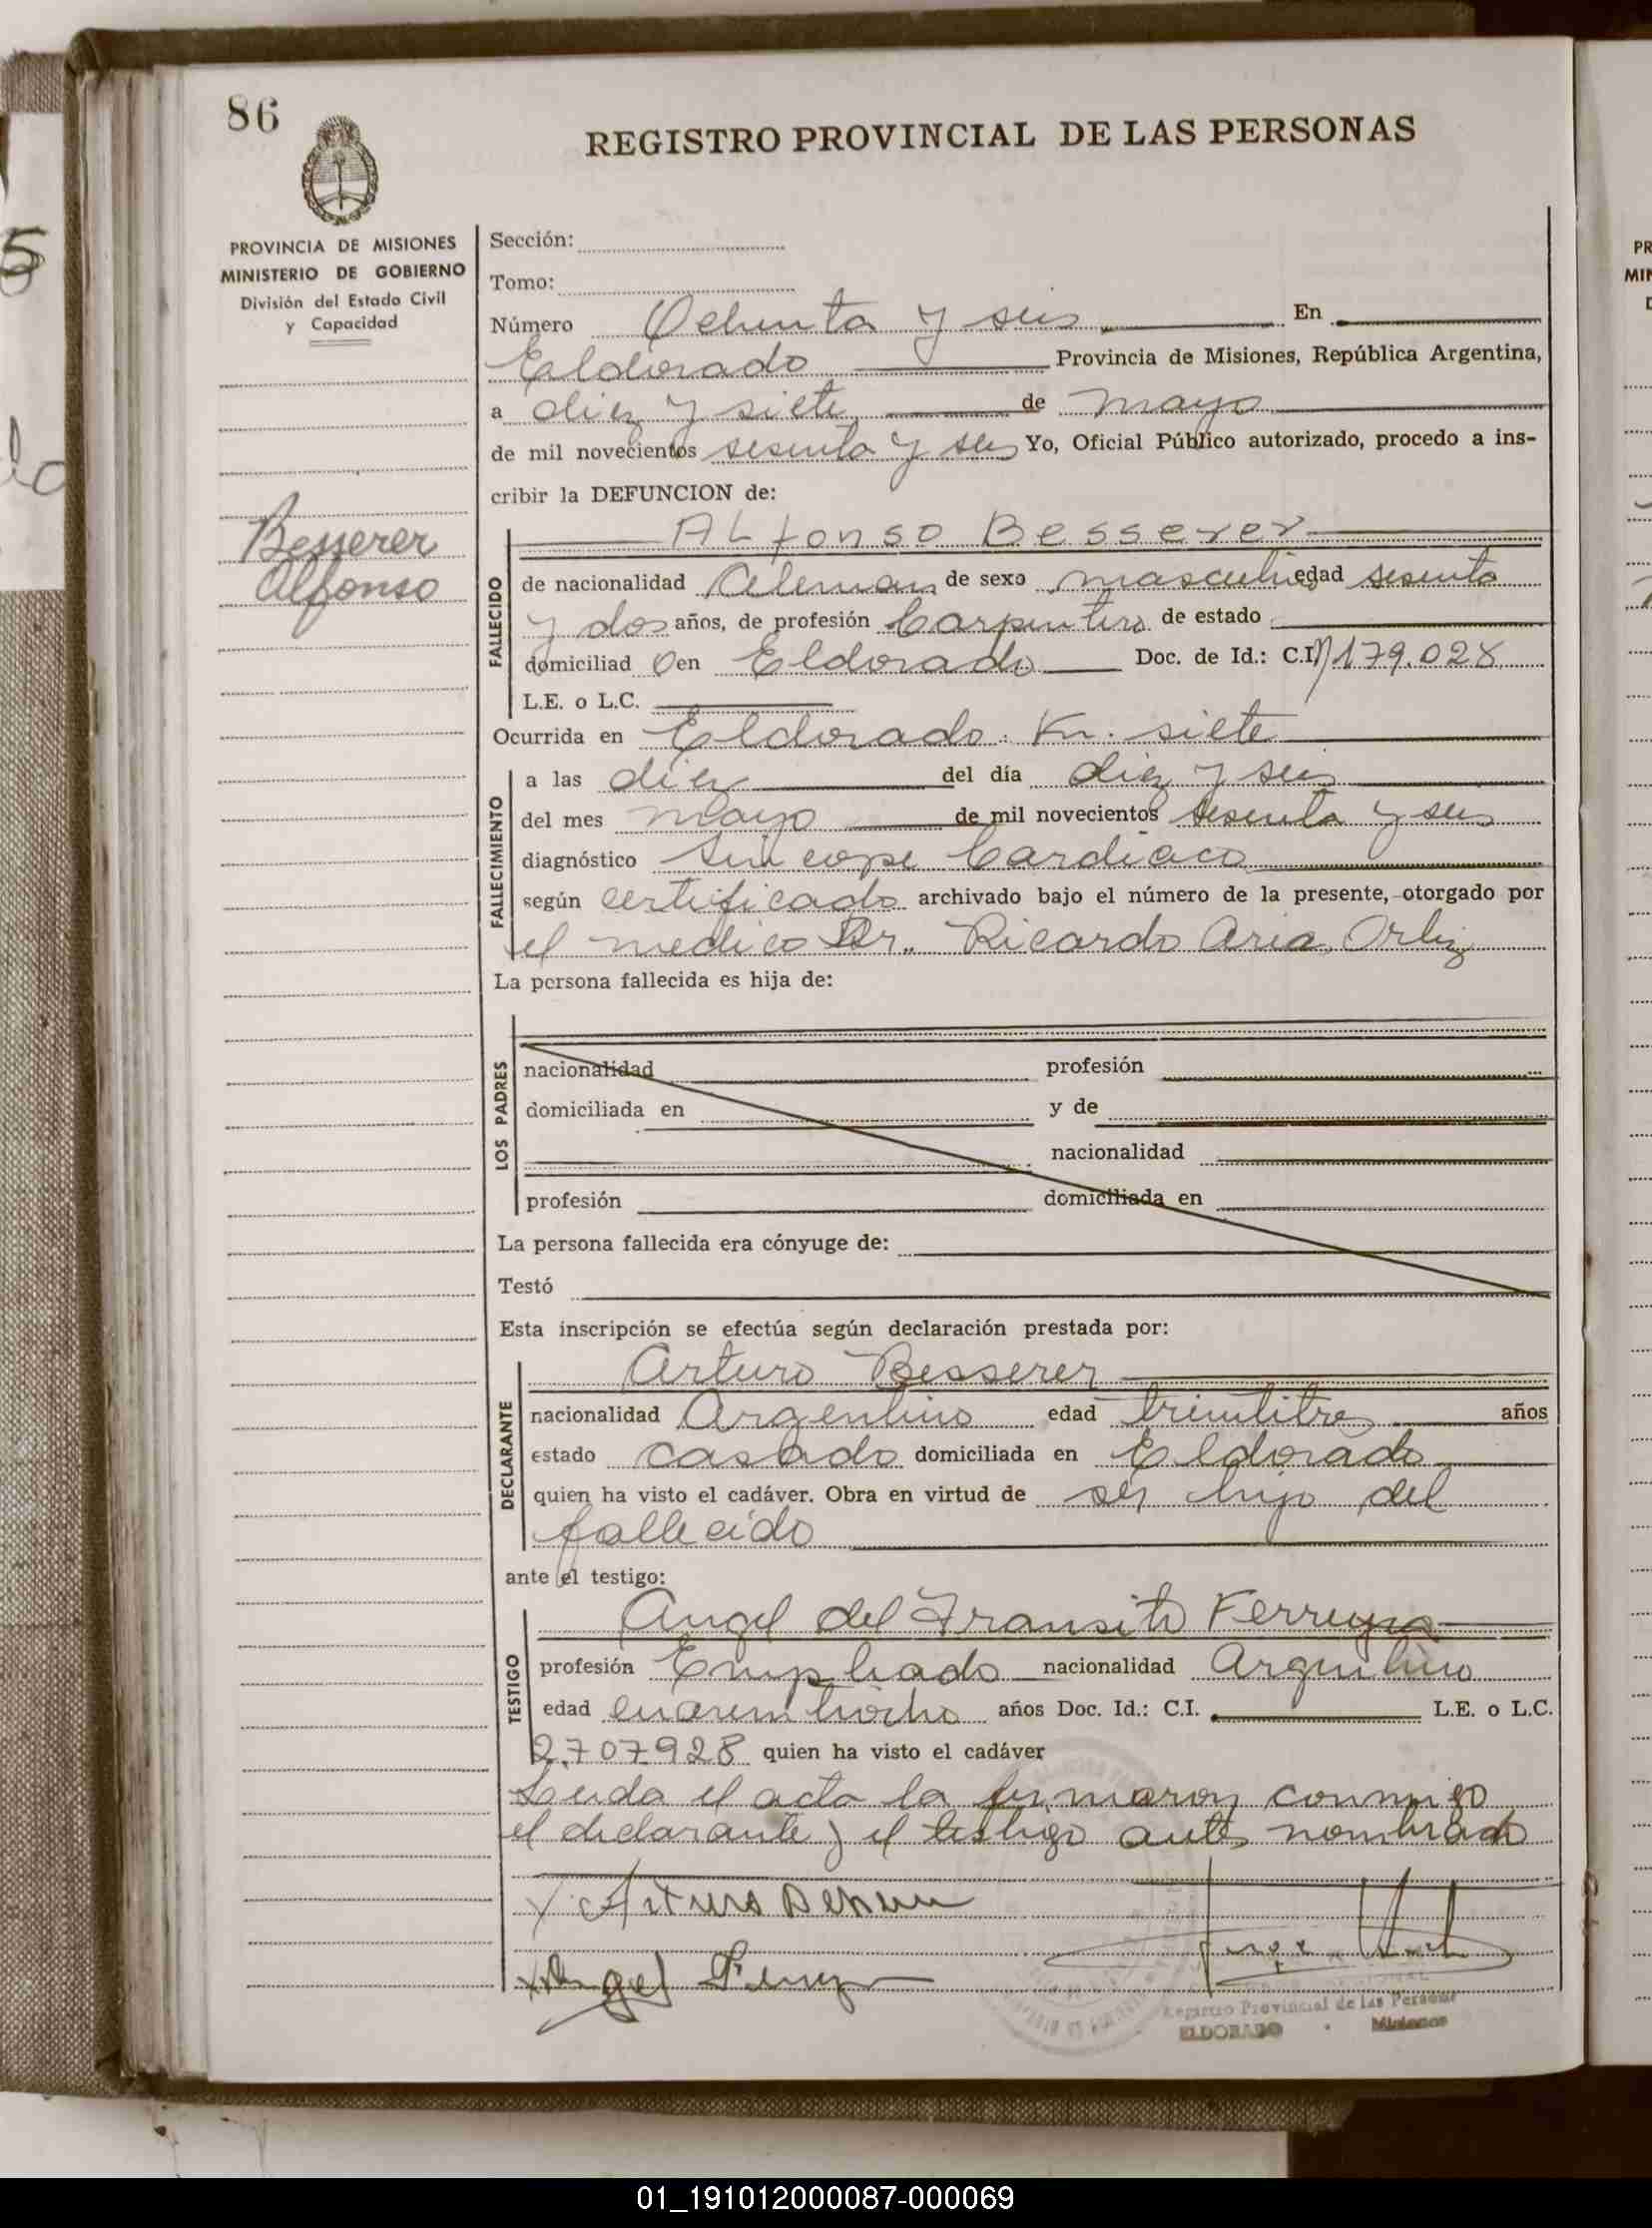 86
REGISTRO PROVINCIAL DE LAS PERSONAS
PROVINCIA DE MISIONES
MINISTERIO DE GOBIERNO
División del Estado Civil
y Capacidad
Besserer
Alfonso
Sección:
Tomo:
Número Ochenta y seis En
Eldorado Provincia de Misiones, República Argentina,
a diez y siete de mayo
de mil novecientos sesenta y seis Yo, Oficial Público autorizado, procedo a ins-
cribir la DEFUNCION de:
ALfonso Besserer
FALLECIDO
de nacionalidad Aleman de sexo masculino edad sesenta
y dos años, de profesión Carpintero de estado
domiciliad o en Eldorado Doc. de Id.: C.I. 179.028
L.E. o L.C.
Ocurrida en Eldorado Km. siete
FALLECIMIENTO
a las diez del día diez y seis
del mes mayo de mil novecientos sesenta y seis
diagnóstico Sincope Cardiaco
según certificado archivado bajo el número de la presente, otorgado por
el medico Dr. Ricardo Aria Ortiz
La persona fallecida es hija de:
LOS PADRES
nacionalidad profesión
domiciliada en y de
nacionalidad
profesión domiciliada en
La persona fallecida era cónyuge de:
Testó
Esta inscripción se efectúa según declaración prestada por:
DECLARANTE
Arturo Besserer
nacionalidad Argentino edad treintitres años
estado casado domiciliada en Eldorado
quien ha visto el cadáver. Obra en virtud de ser hijo del
fallecido
ante el testigo:
TESTIGO
Angel del Transito Ferreyra
profesión Empleado nacionalidad Argentino
edad cuarentiocho años Doc. Id.: C.I. L.E. o L.C.
2.707928 quien ha visto el cadáver
Leida el acta la firmaron conmigo
el declarante y el testigo antes nombrado
Arturo Besserer
Angel
Registro Provincial de las Personas
ELDORADO Misiones
01_191012000087-000069